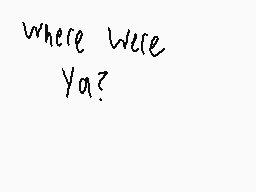 where were
ya?